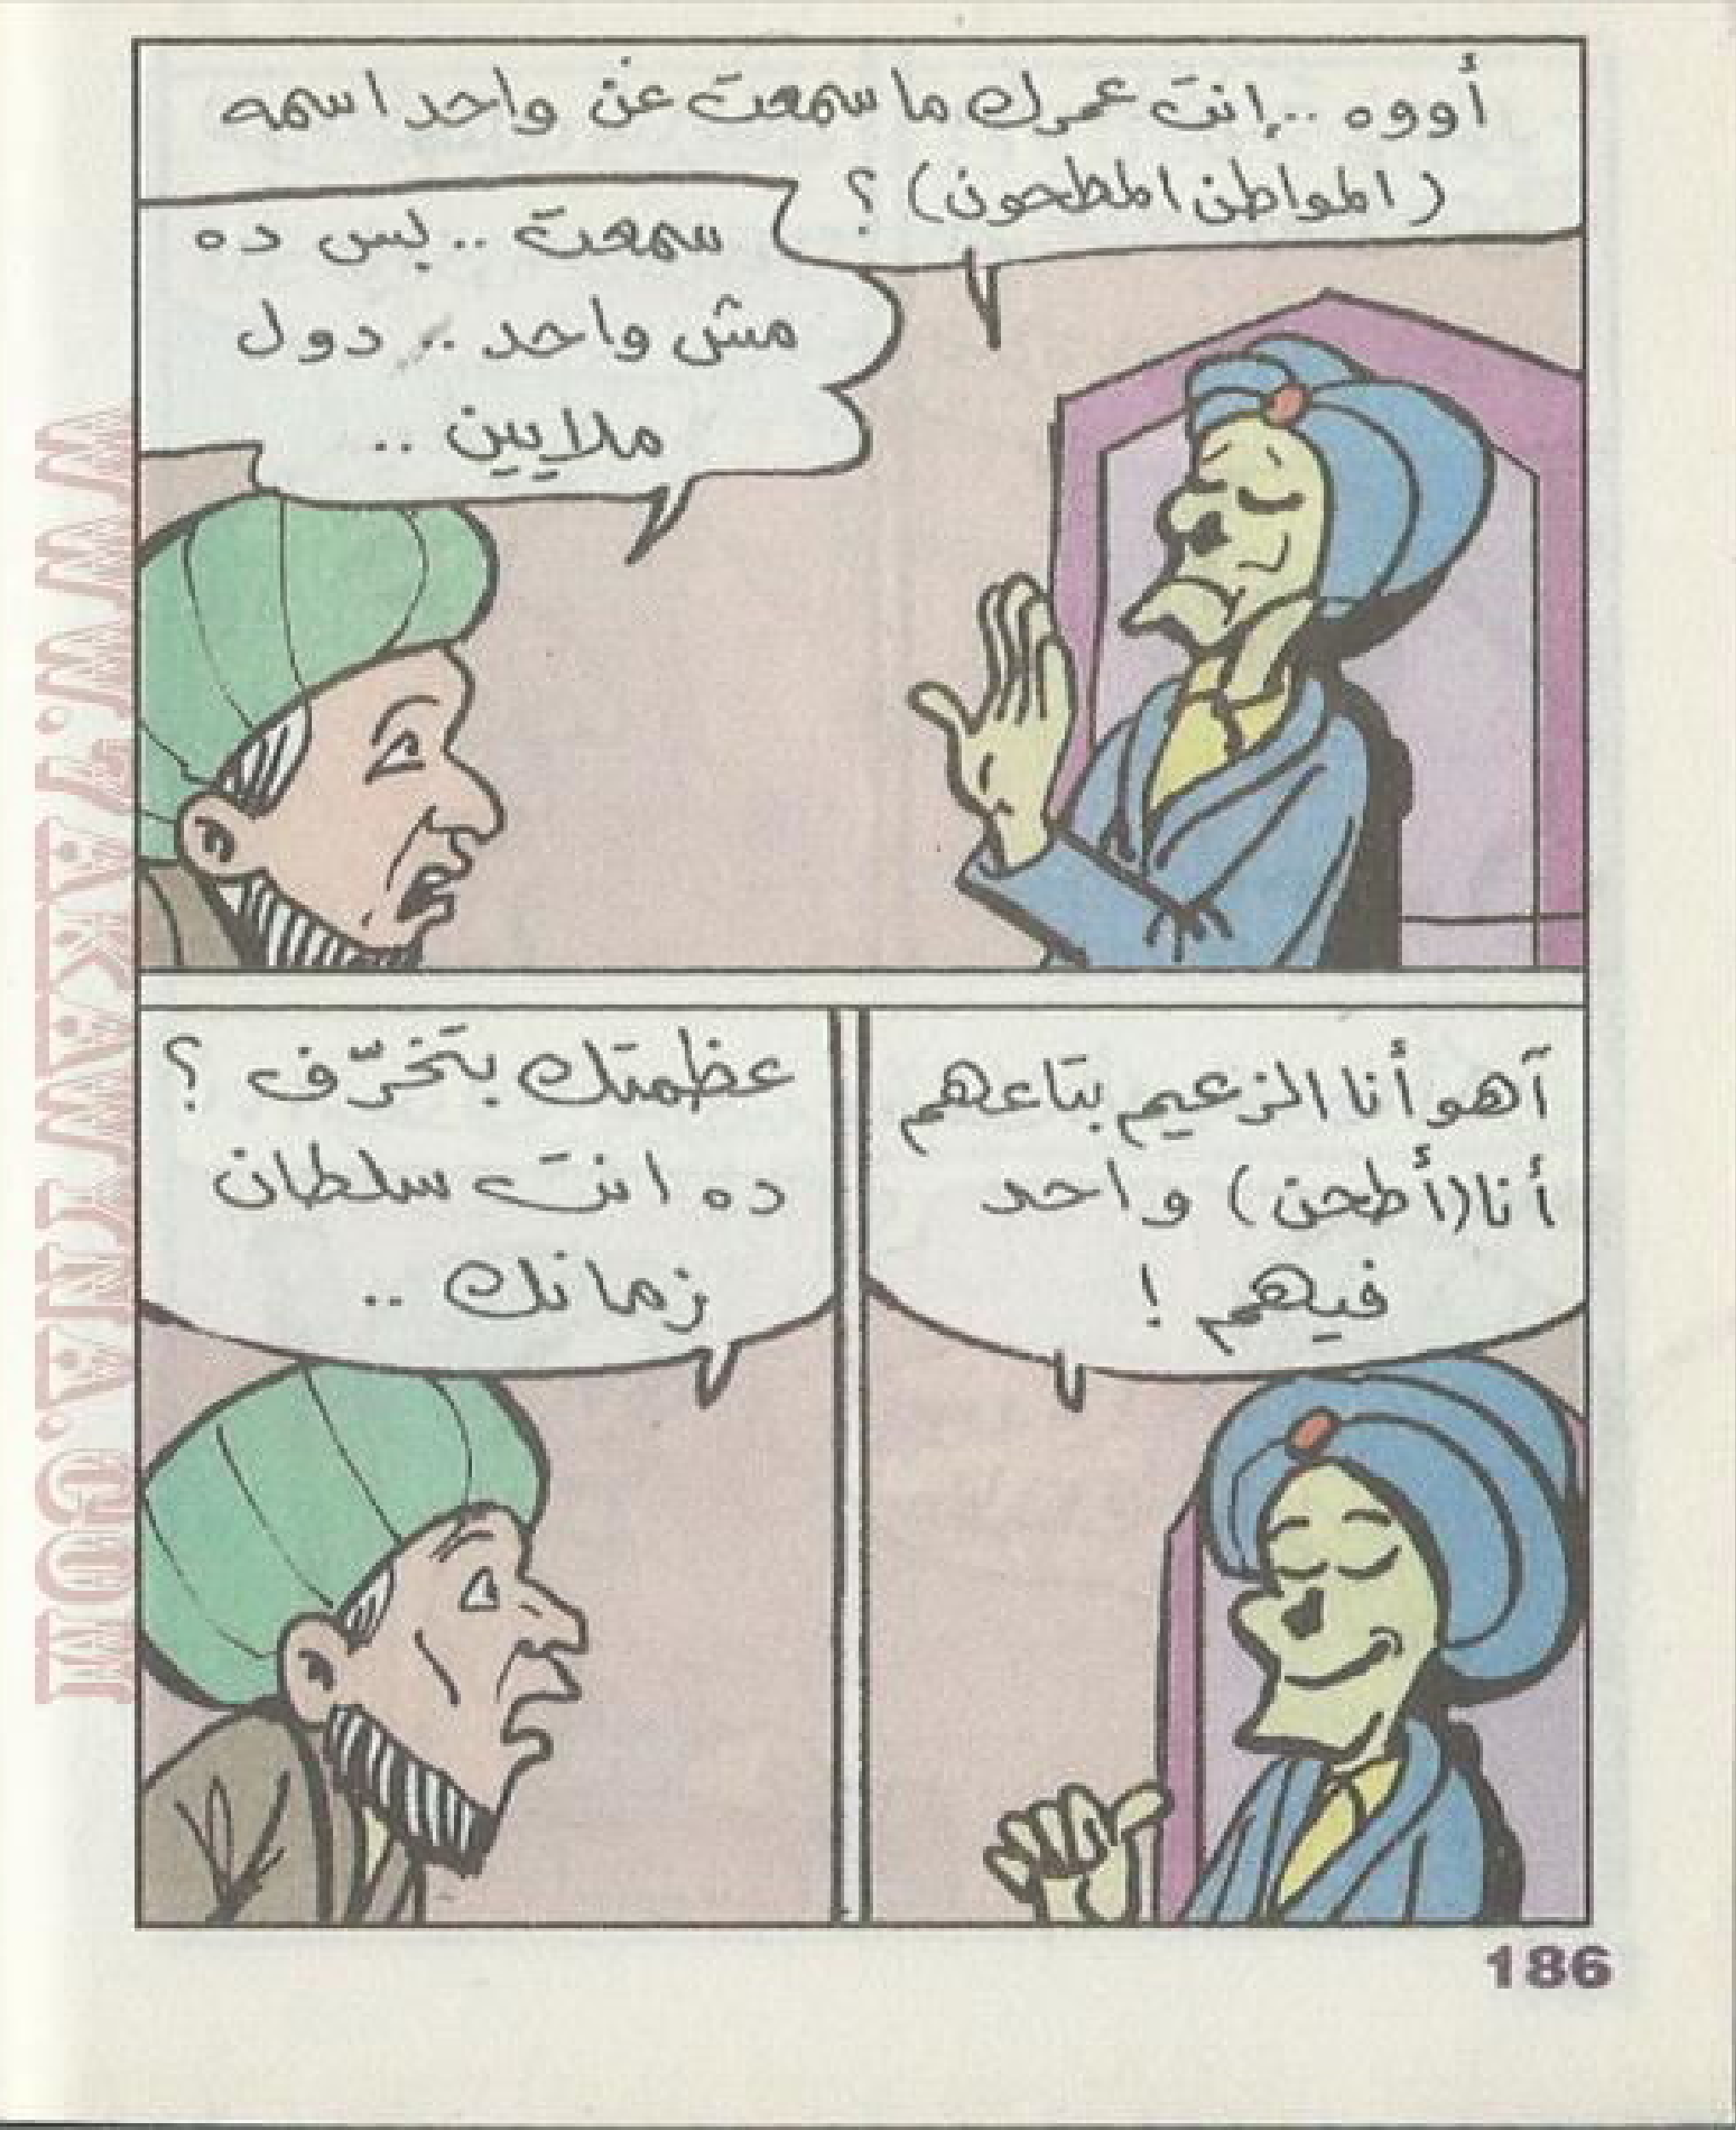 أووه .. إنت عمرك ما سمعت عن واحد اسمه
(المواطن المطحون) ؟
سمعت .. بس ده
مش واحد .. دول
ملايين ..
آهو أنا الزعيم بتاعهم
أنا (أطحن) واحد
فيهم !
عظمتك بتخرّف ؟
ده انت سلطان
زمانك ..
186